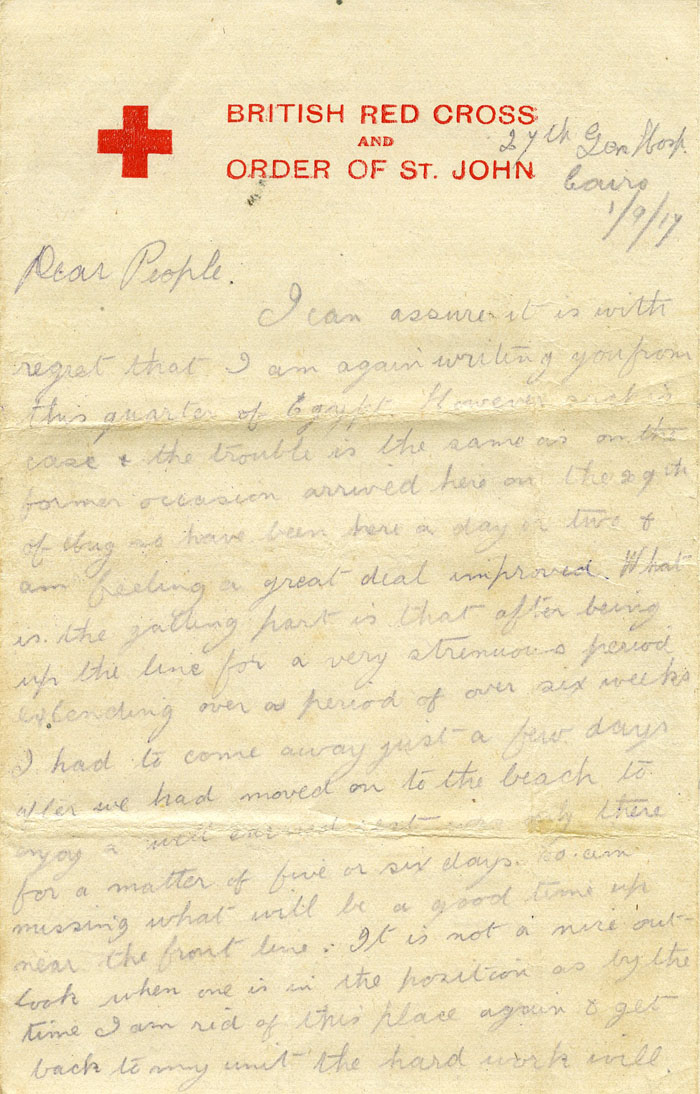 BRITISH RED CROSS
AND
ORDER OF ST. JOHN
27th Gen Hosp.
Cairo
1/9/17
Dear People.
I can assure it is with
regret that I am again writing you from
this quarter of Egypt. However such is
case & the trouble is the same as on the
former occasion arrived here on the 29th
of Aug so have been here a day or two &
am feeling a great deal improved. What
is the galling part is that after being
up the line for a very strenuous period
extending over a period of over six weeks
I had to come away just a few days
after we had moved on to the beach to
enjoy a well earned rest was only there
for a matter of five or six days. So am
missing what will be a good time up
near the front line. It is not a nice out-
look when one is in the position as by the
time I am rid of this place again & get
back to my unit the hard work will